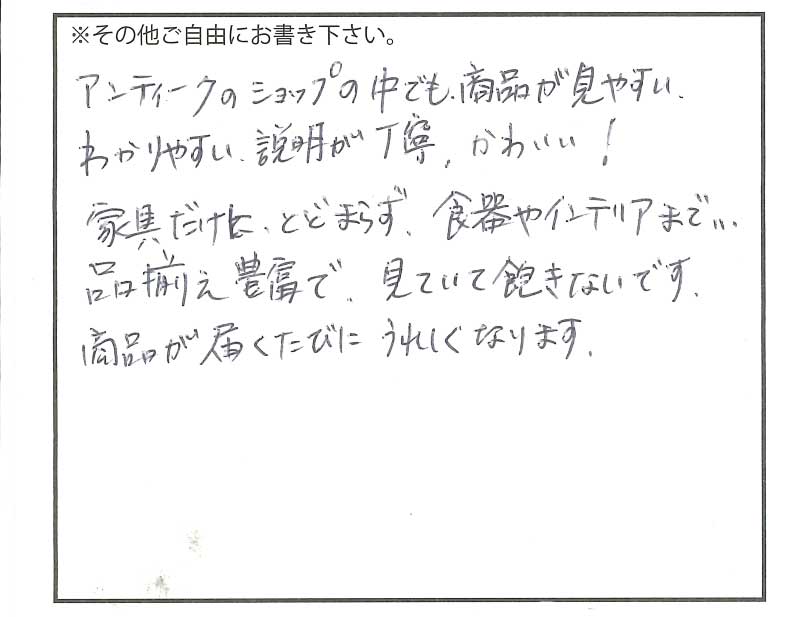 ※その他ご自由にお書き下さい。
アンティークのショップの中でも、商品が見やすい、
わかりやすい、説明が丁寧、かわいい！
家具だけに、とどまらず、食器やインテリアまで…
品揃え豊富で、見ていて飽きないです。
商品が届くたびにうれしくなります。